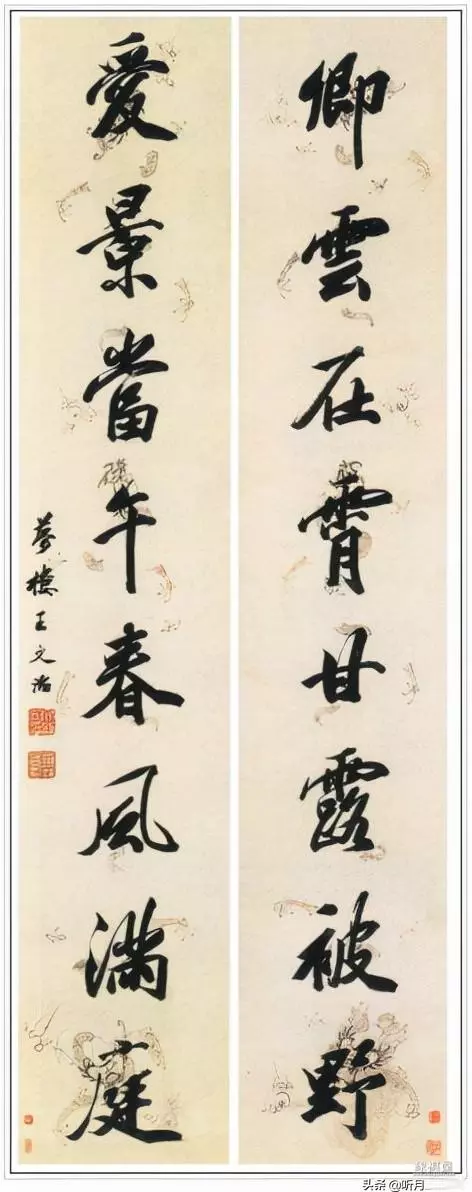 卿雲在霄甘露被野
愛景當午春風滿庭
夢樓王文治
头条@听月